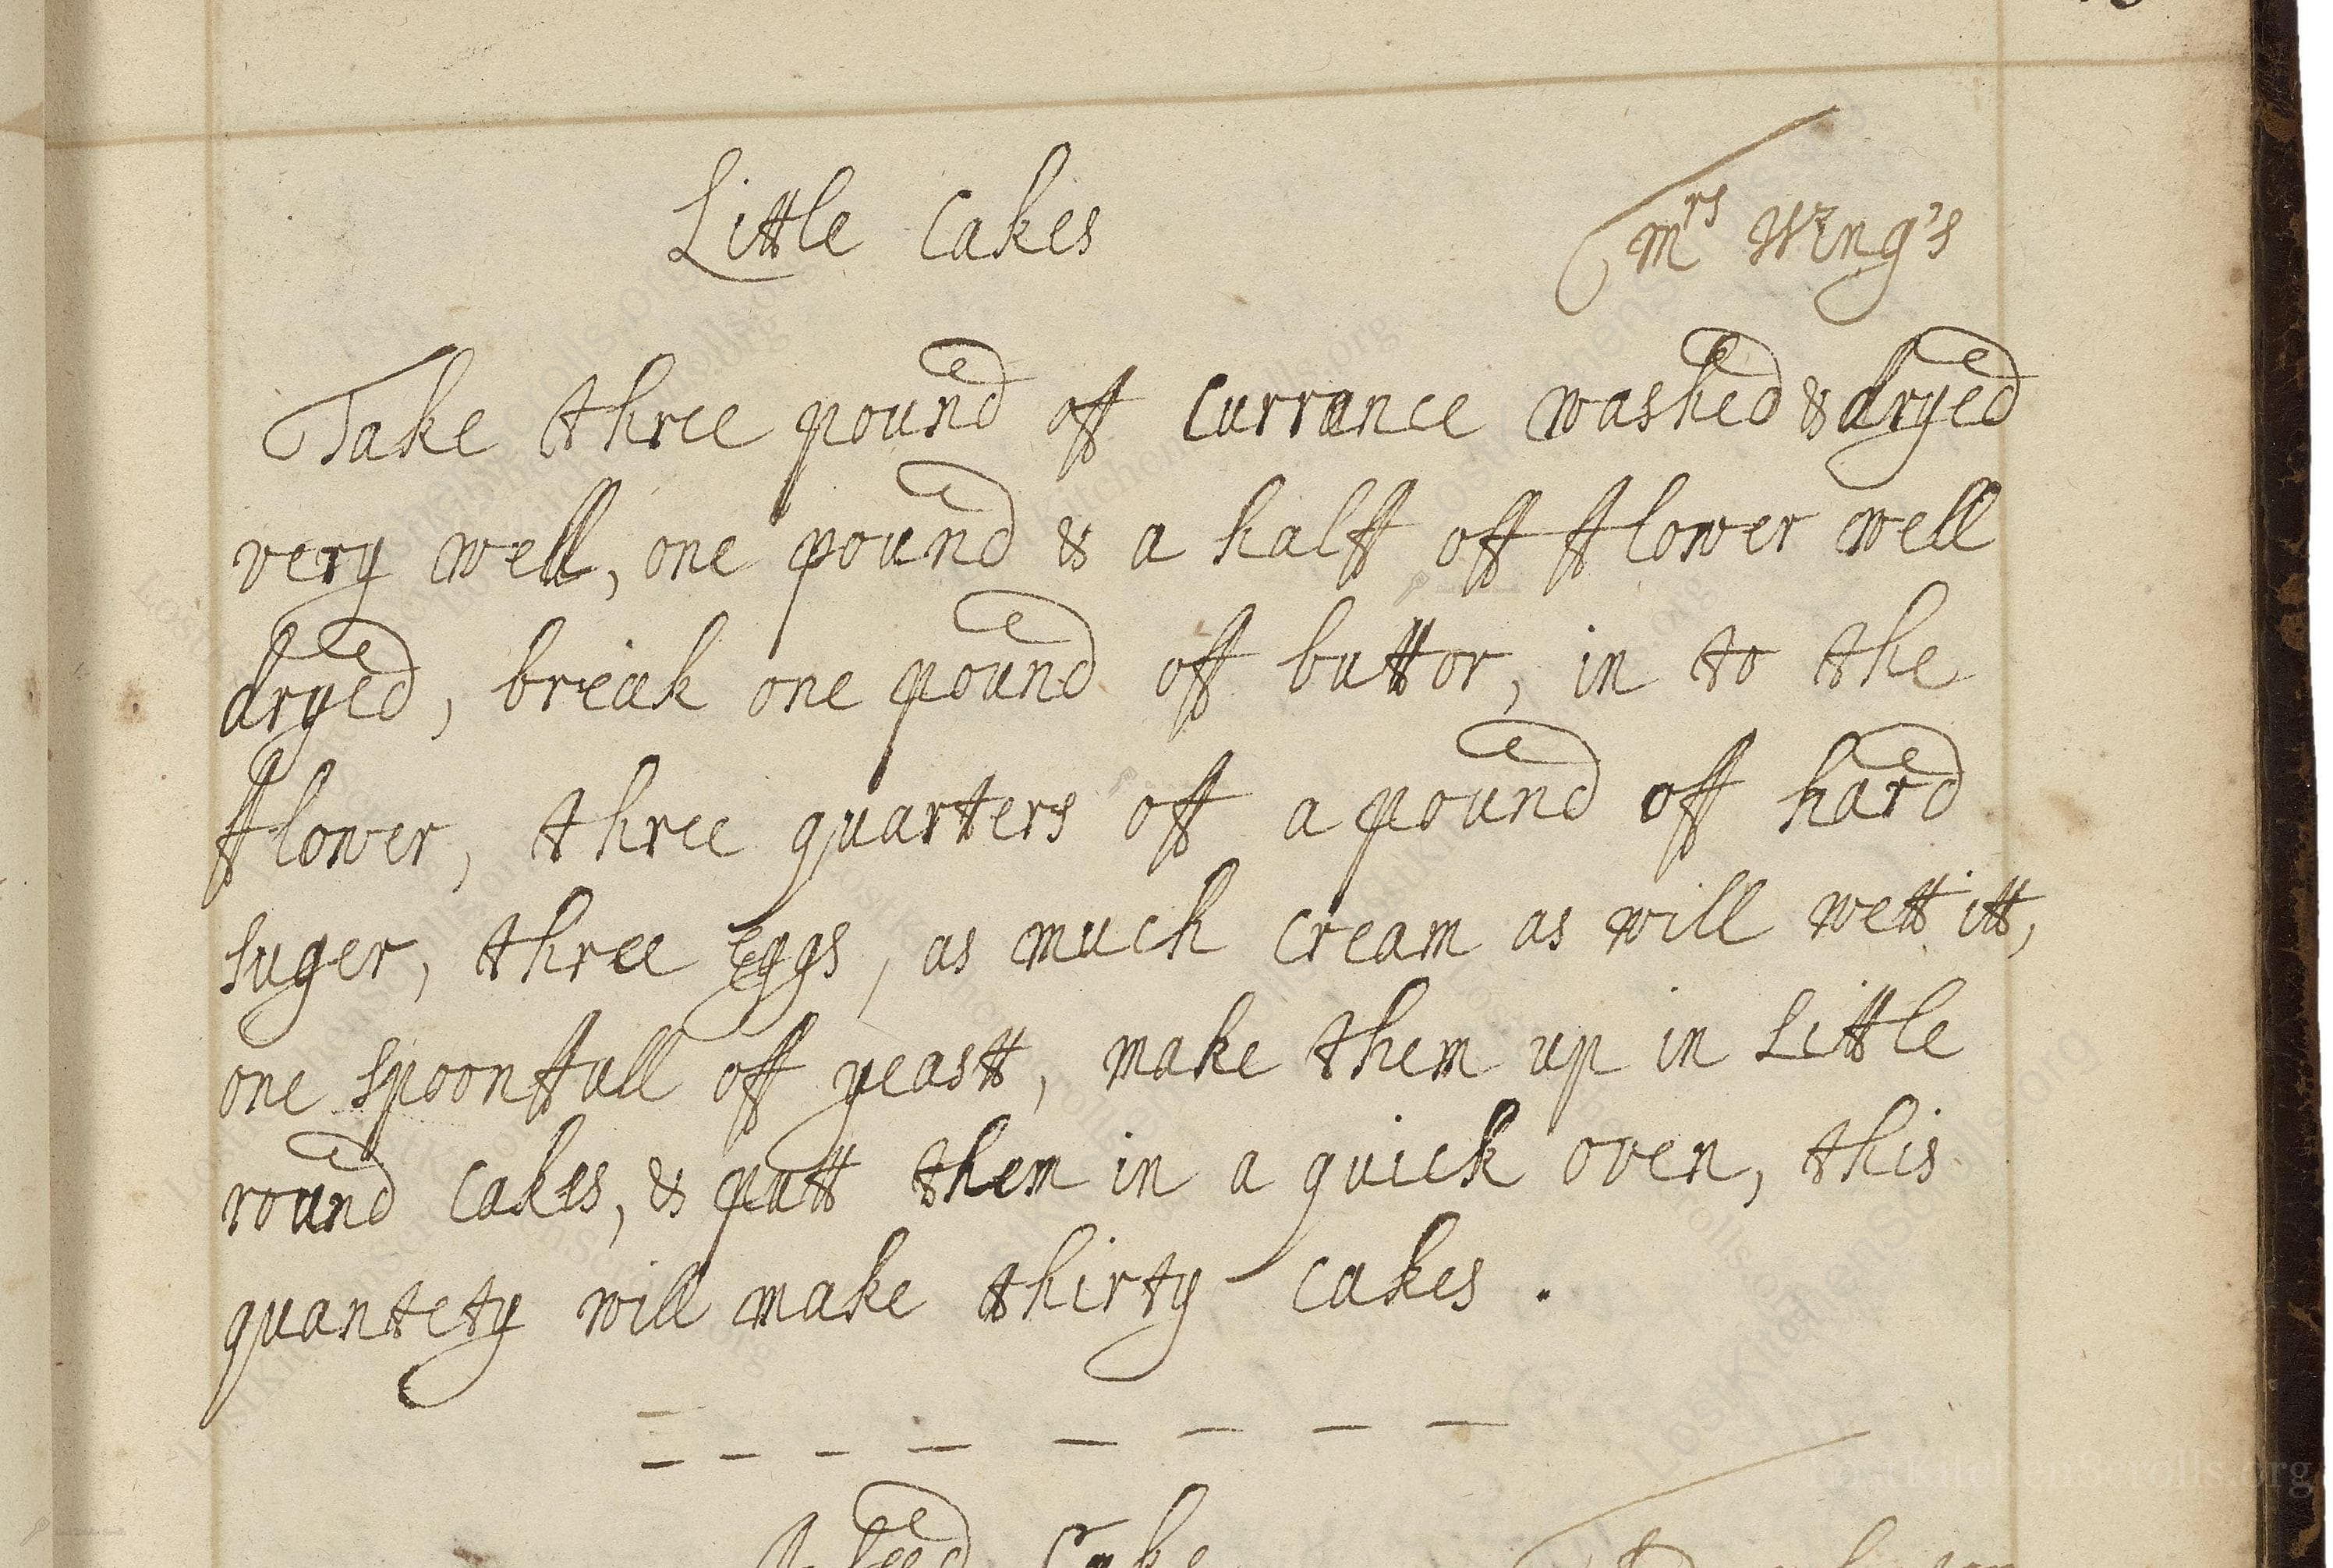 Little Cakes
Mrs Wing's
Take three pound off Currance washed & dryed
very well, one pound & a halff off fflower well
dryed, break one pound off buttor, in to the
fflower, three quarters off a pound off hard
suger, three Eggs, as much cream as will wett itt,
one spoonffull off yeastt, make them up in Little
round cakes, & putt them in a quick oven, this
quantety will make thirty cakes.
A Seed Cake
LostKitchenScrolls.org